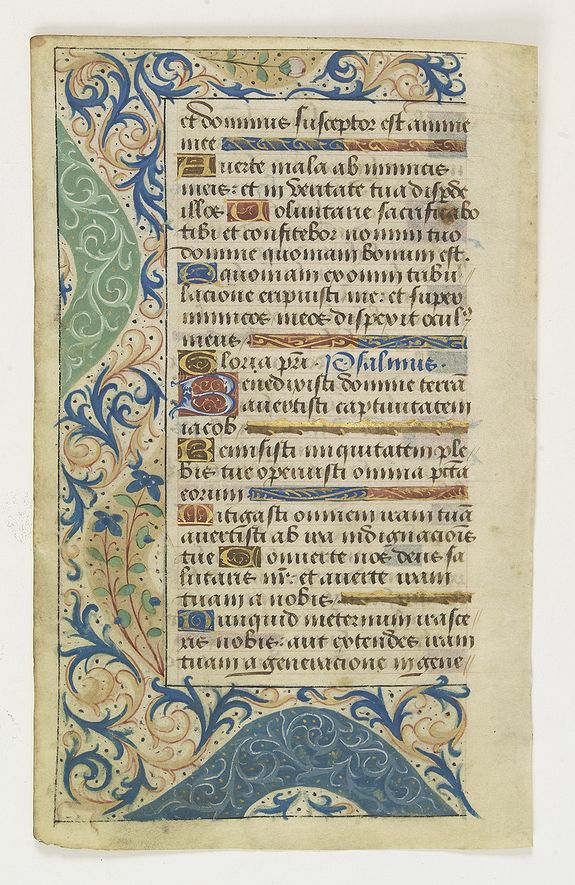 et dominus susceptor est anime
mee
Auerte mala ab inimicis
meis: et in veritate tua disp̲de
illos Voluntarie sacrificabo
tibi et confitebor nomini tuo
domine quoniam bonum est.
Quoniam ex omni tribu
lacione eripuisti me: et super
inimicos meos dispexit oculꝰ
meus
Gloria pr̄i. Psalmus.
Benedixisti domine terrā
auertisti captiuitatem
iacob
Remisisti iniquitatem ple
bis tue operuisti omnia pctā
eorum
Mitigasti omnem iram tuā
auertisti ab ira indignacionis
tue Conuerte nos deus sa
lutaris nr̄. et auerte iram
tuam a nobis.
Nunquid ineternum irasce
ris nobis: aut extendes iram
tuam a generacione in gene